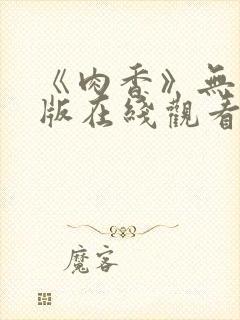 《肉香》無
版在綫觀看
魔客